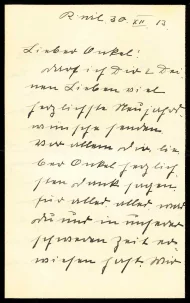 Rueil 30. XII 13
Lieber Onkel:
Darf ich Dir & Dei-
nen Lieben viel
herzlichste Neujahrs-
wünsche senden
vor allem dir, lie-
ber Onkel herzlich-
sten Dank sagen
für alles, alles was
du uns in unserer
schweren Zeit er-
wiesen hast. Wir